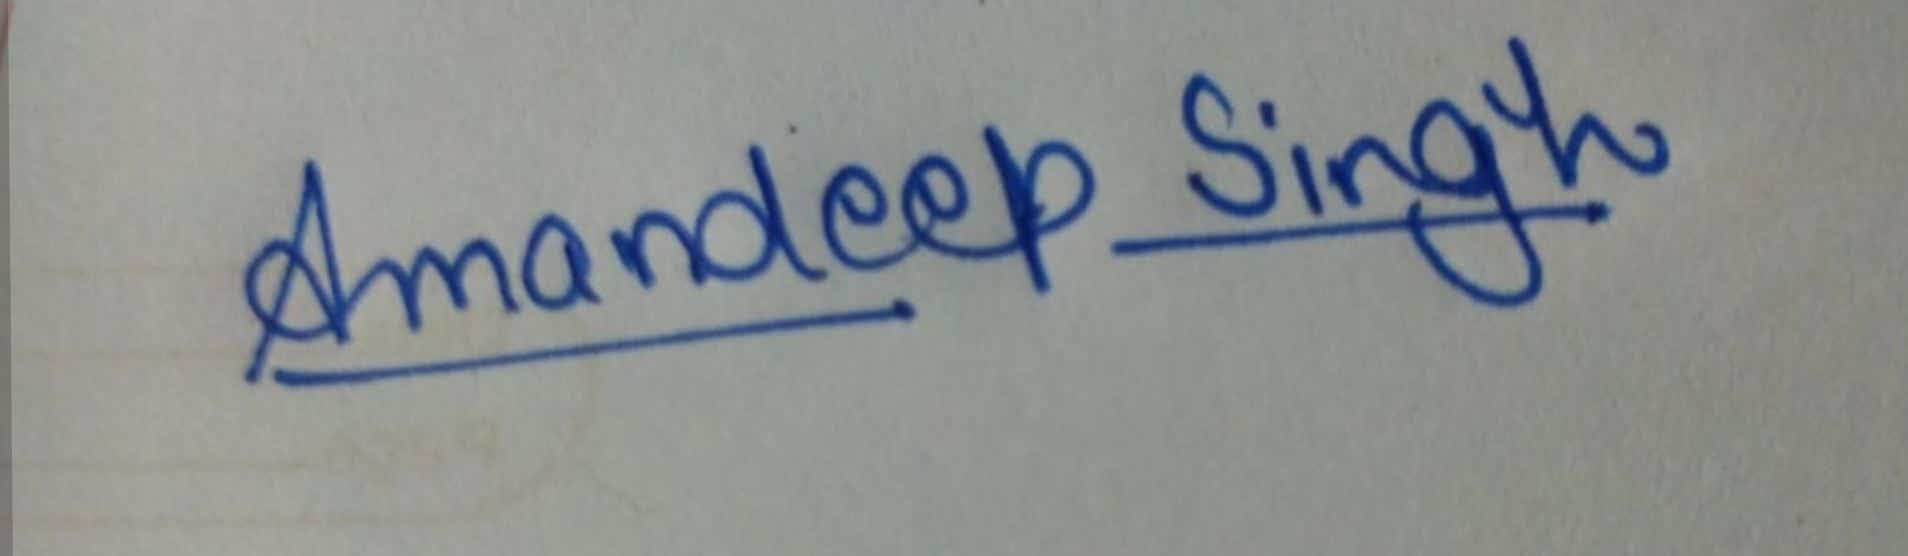 Amandeep Singh